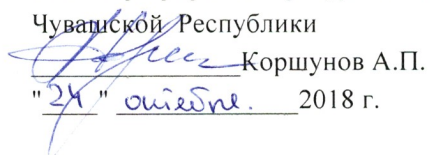 Чувашской Республики
Коршунов А.П.
"24" октября. 2018 г.